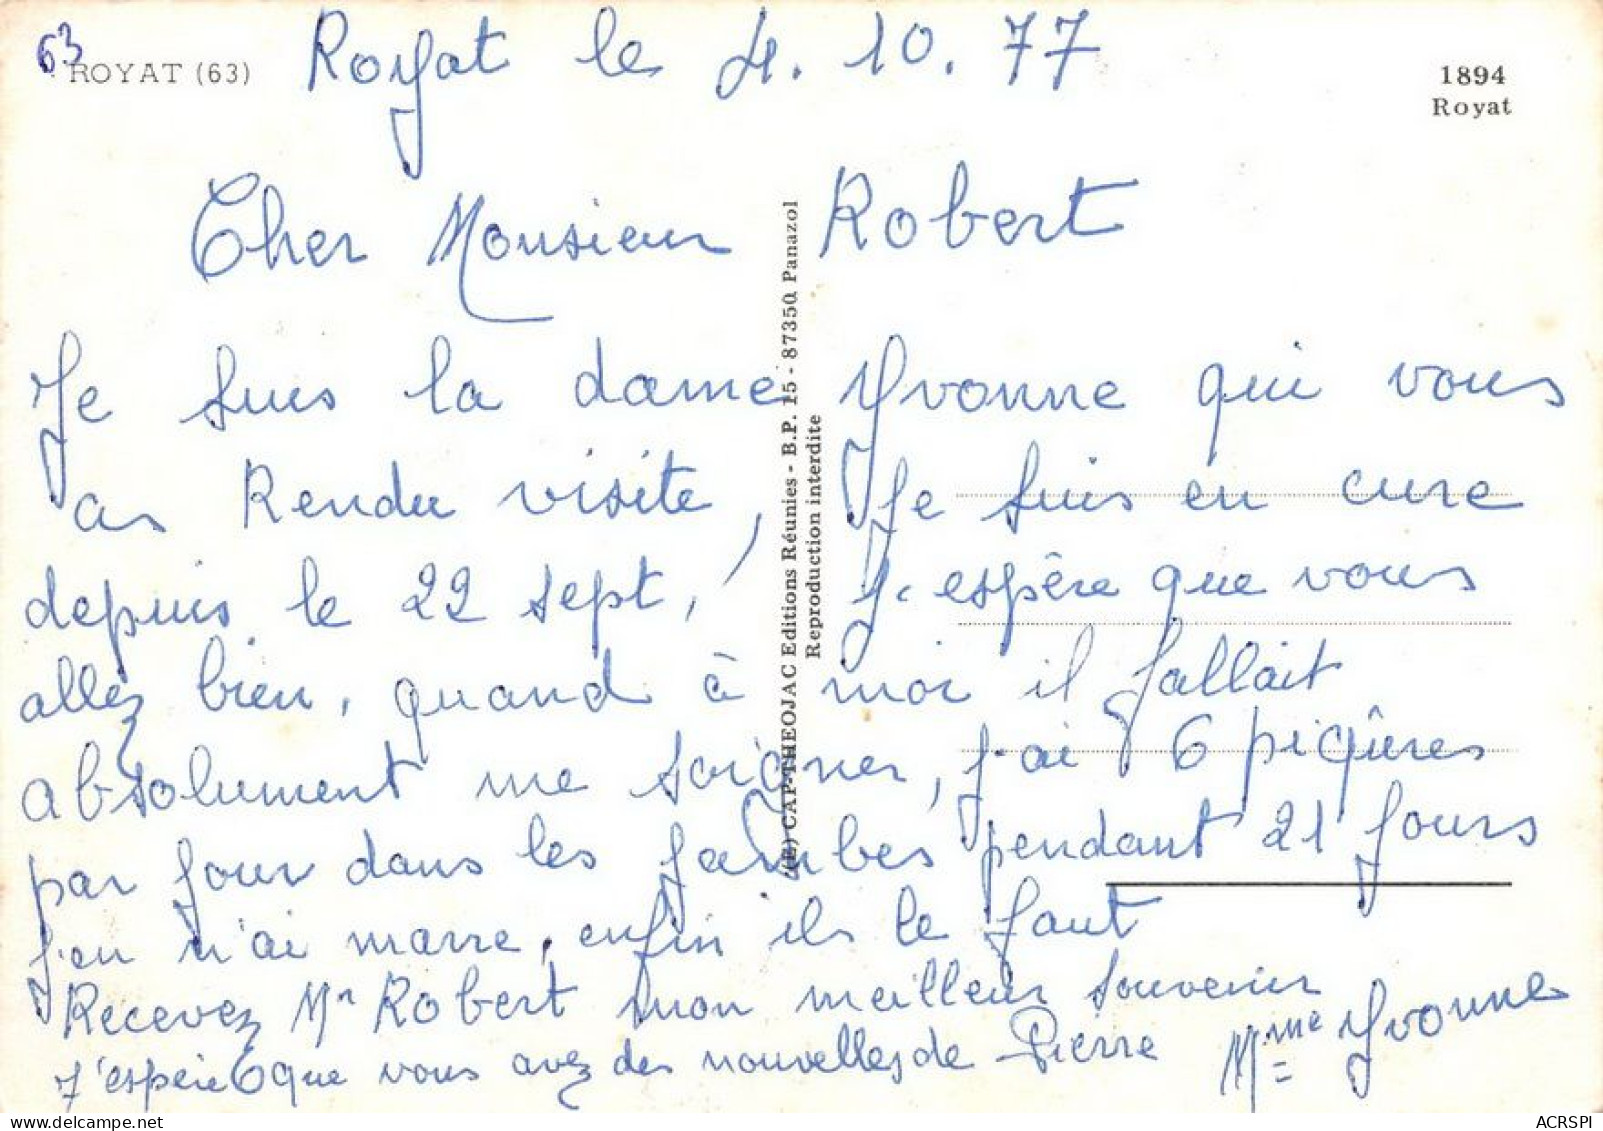 63
ROYAT (63)
Royat le 4.10.77
1894
Royat
Cher Monsieur Robert
Je suis la dame Yvonne qui vous
as Rendu visite, Je suis en cure
depuis le 22 sept, j'espère que vous
allez bien, quand à moi il fallait
absolument me soigner, j'ai 6 piqûres
par jour dans les jambes pendant 21 jours
j'en n'ai marre, enfin ils le faut
Recevez Mr Robert mon meilleur souvenir
J'espère que vous avez des nouvelles de Pierre
Mme Yvonne
(E) CAP-THEOJAC Editions Réunies - B.P. 15 - 87350 Panazol
Reproduction interdite
ACRSPI